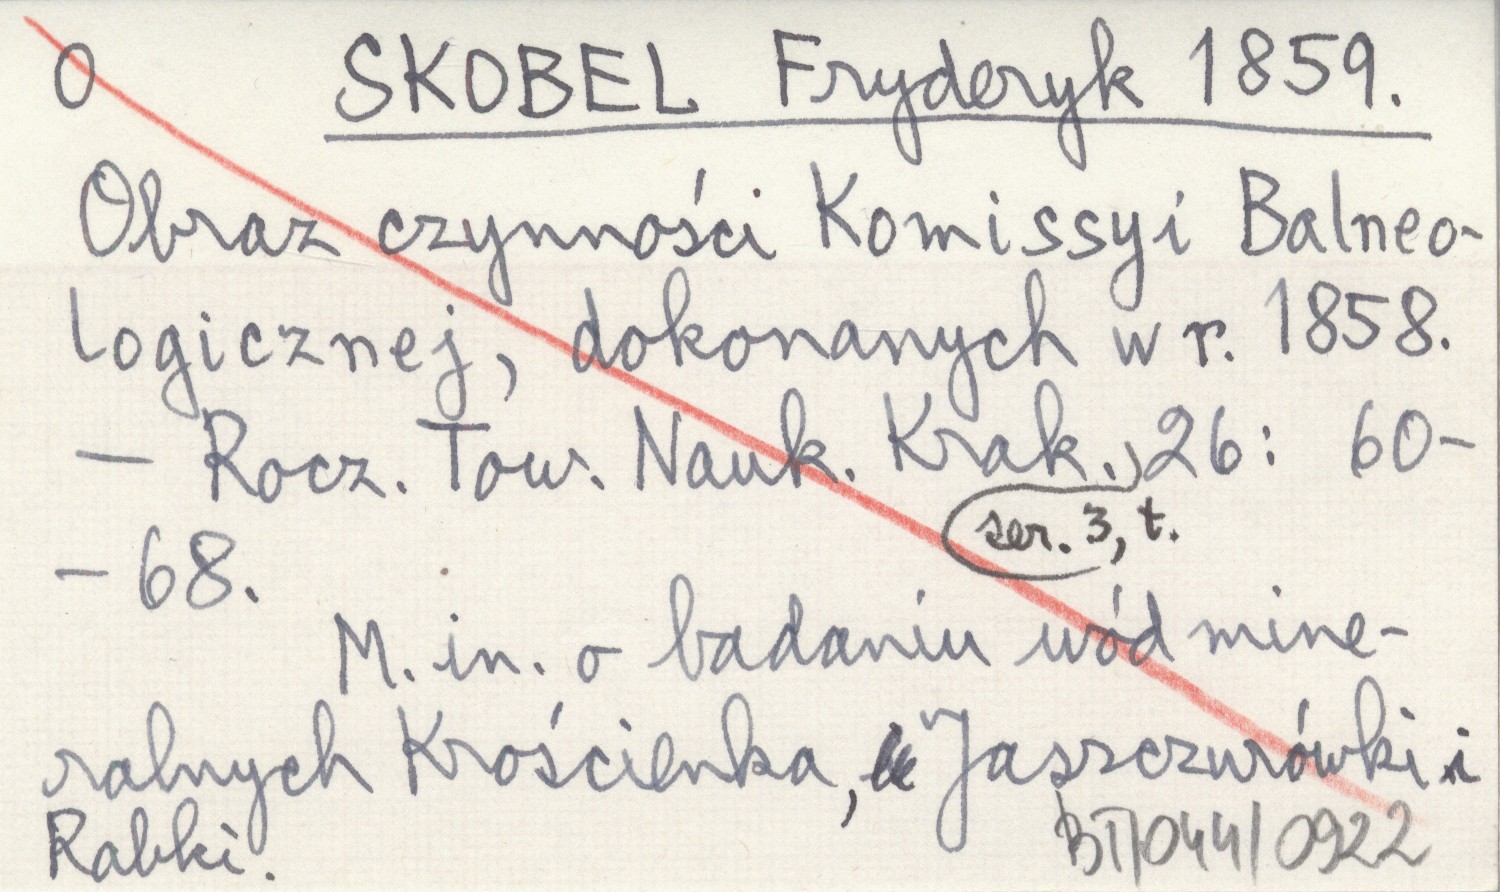 O SKOBEL Fryderyk 1859.
Obraz czynności Komissyi Balneo-
logicznej, dokonanych w r. 1858.
— Rocz. Tow. Nauk. Krak., 26: 60-
ser. 3, t.
- 68.
M. in. o badaniu wód mine-
ralnych Krościenka, Jaszczurówki i
Rabki.
BT/044/0922